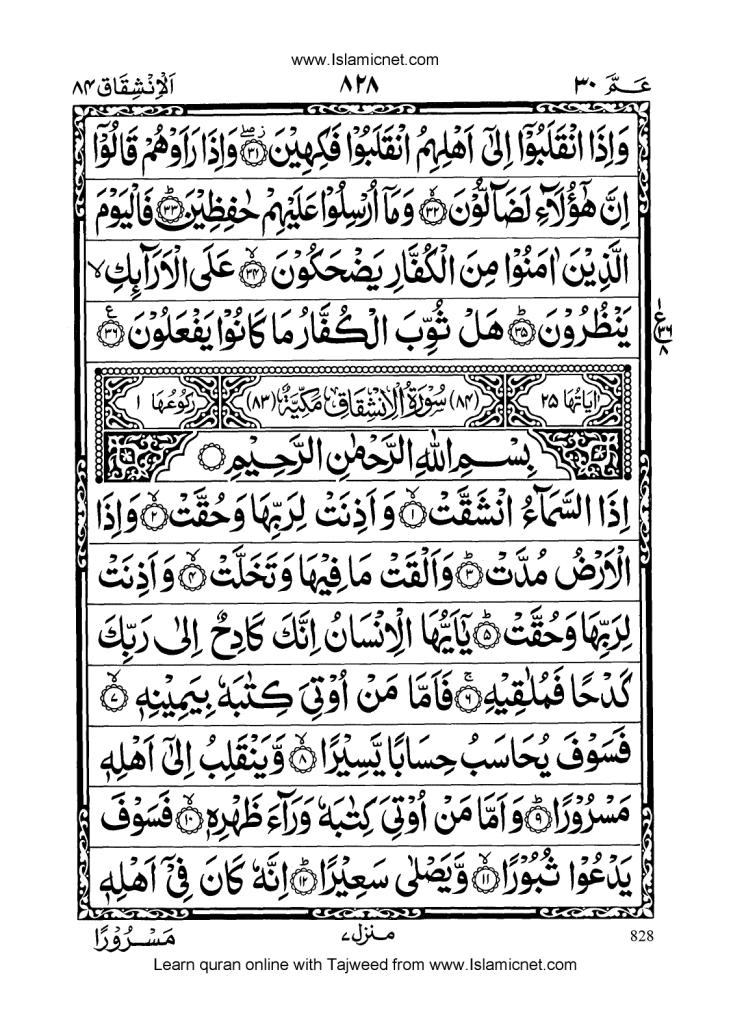 www.Islamicnet.com
عَمَّ ۳۰ ۸۲۸ اَلْاِنْشِقَاق ۸۴
وَاِذَا انْقَلَبُوْۤا اِلٰۤى اَهْلِهِمُ انْقَلَبُوْا فَكِهِيْنَ ۖ۫ ۳۱ وَاِذَا رَاَوْهُمْ قَالُوْۤا
اِنَّ هٰۤؤُلَآءِ لَضَآلُّوْنَ ۙ ۳۲ وَمَاۤ اُرْسِلُوْا عَلَيْهِمْ حٰفِظِيْنَ ؕ ۳۳ فَالْيَوْمَ
الَّذِيْنَ اٰمَنُوْا مِنَ الْكُفَّارِ يَضْحَكُوْنَ ۙ ۳۴ عَلَى الْاَرَآىِٕكِ ۙ
يَنْظُرُوْنَ ؕ ۳۵ هَلْ ثُوِّبَ الْكُفَّارُ مَا كَانُوْا يَفْعَلُوْنَ ۳۶ ع
۱ ع ۳۶ ۸
اٰيَاتُهَا ۲۵ (۸۴) سُوْرَةُ الْاِنْشِقَاقِ مَكِّيَّةٌ (۸۳) رُكُوْعُهَا ۱
بِسْمِ اللّٰهِ الرَّحْمٰنِ الرَّحِيْمِ
اِذَا السَّمَآءُ انْشَقَّتْ ۙ ۱ وَاَذِنَتْ لِرَبِّهَا وَحُقَّتْ ۙ ۲ وَاِذَا
الْاَرْضُ مُدَّتْ ؕ ۳ وَاَلْقَتْ مَا فِيْهَا وَتَخَلَّتْ ۙ ۴ وَاَذِنَتْ
لِرَبِّهَا وَحُقَّتْ ؕ ۵ يٰۤاَيُّهَا الْاِنْسَانُ اِنَّكَ كَادِحٌ اِلٰى رَبِّكَ
كَدْحًا فَمُلٰقِيْهِ ۚ ۶ فَاَمَّا مَنْ اُوْتِيَ كِتٰبَهٗ بِيَمِيْنِهٖ ۙ ۷
فَسَوْفَ يُحَاسَبُ حِسَابًا يَّسِيْرًا ۙ ۸ وَّيَنْقَلِبُ اِلٰۤى اَهْلِهٖ
مَسْرُوْرًا ؕ ۹ وَاَمَّا مَنْ اُوْتِيَ كِتٰبَهٗ وَرَآءَ ظَهْرِهٖ ۙ ۱۰ فَسَوْفَ
يَدْعُوْا ثُبُوْرًا ۙ ۱۱ وَّيَصْلٰى سَعِيْرًا ؕ ۱۲ اِنَّهٗ كَانَ فِيْۤ اَهْلِهٖ
828 منزل ۷ مَسْرُوْرًا
Learn quran online with Tajweed from www.Islamicnet.com